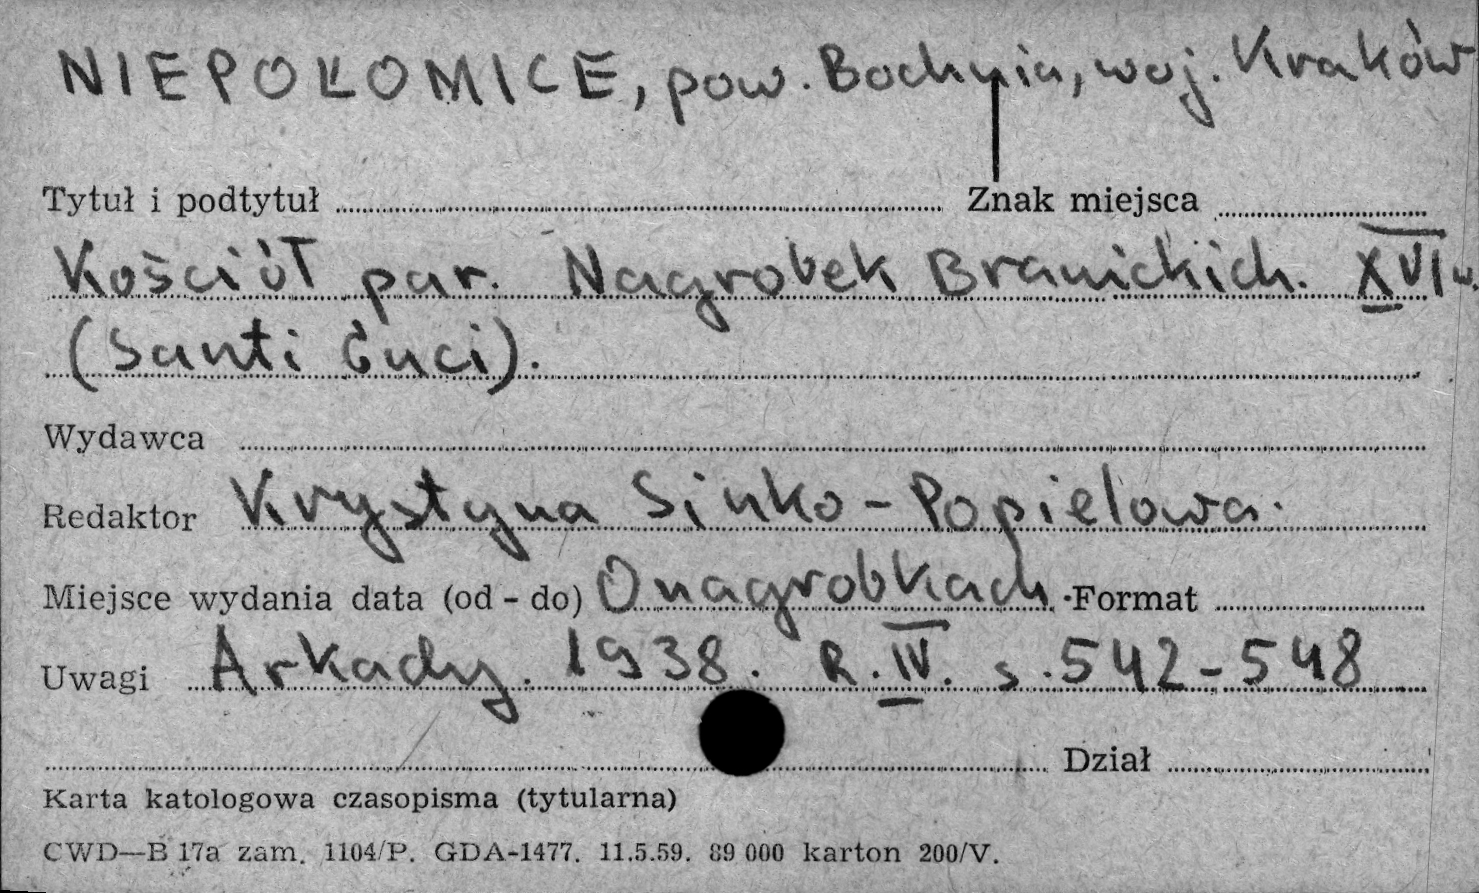 NIEPOŁOMICE, pow. Bochnia, woj. Kraków
Tytuł i podtytuł Znak miejsca
Kościół par. Nagrobek Branickich. XVI w.
(Santi Guci).
Wydawca
Redaktor Krystyna Sinko-Popielowa.
Miejsce wydania data (od - do) O nagrobkach Format
Uwagi Arkady. 1938. R. IV. s. 542-548
Dział
Karta katologowa czasopisma (tytularna)
CWD—B 17a zam. 1104/P. GDA-1477. 11.5.59. 89 000 karton 200/V.